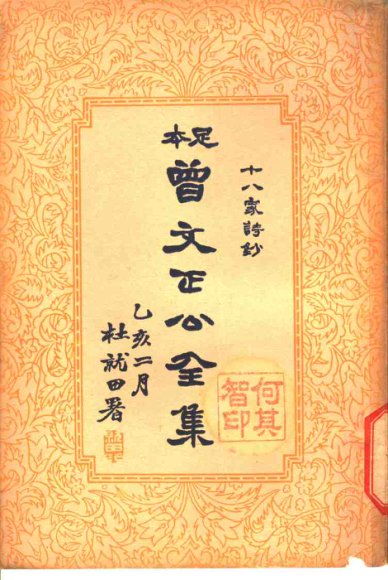 十八家詩鈔
足本
曾文正公全集
乙亥二月
杜就田署
何其
智印